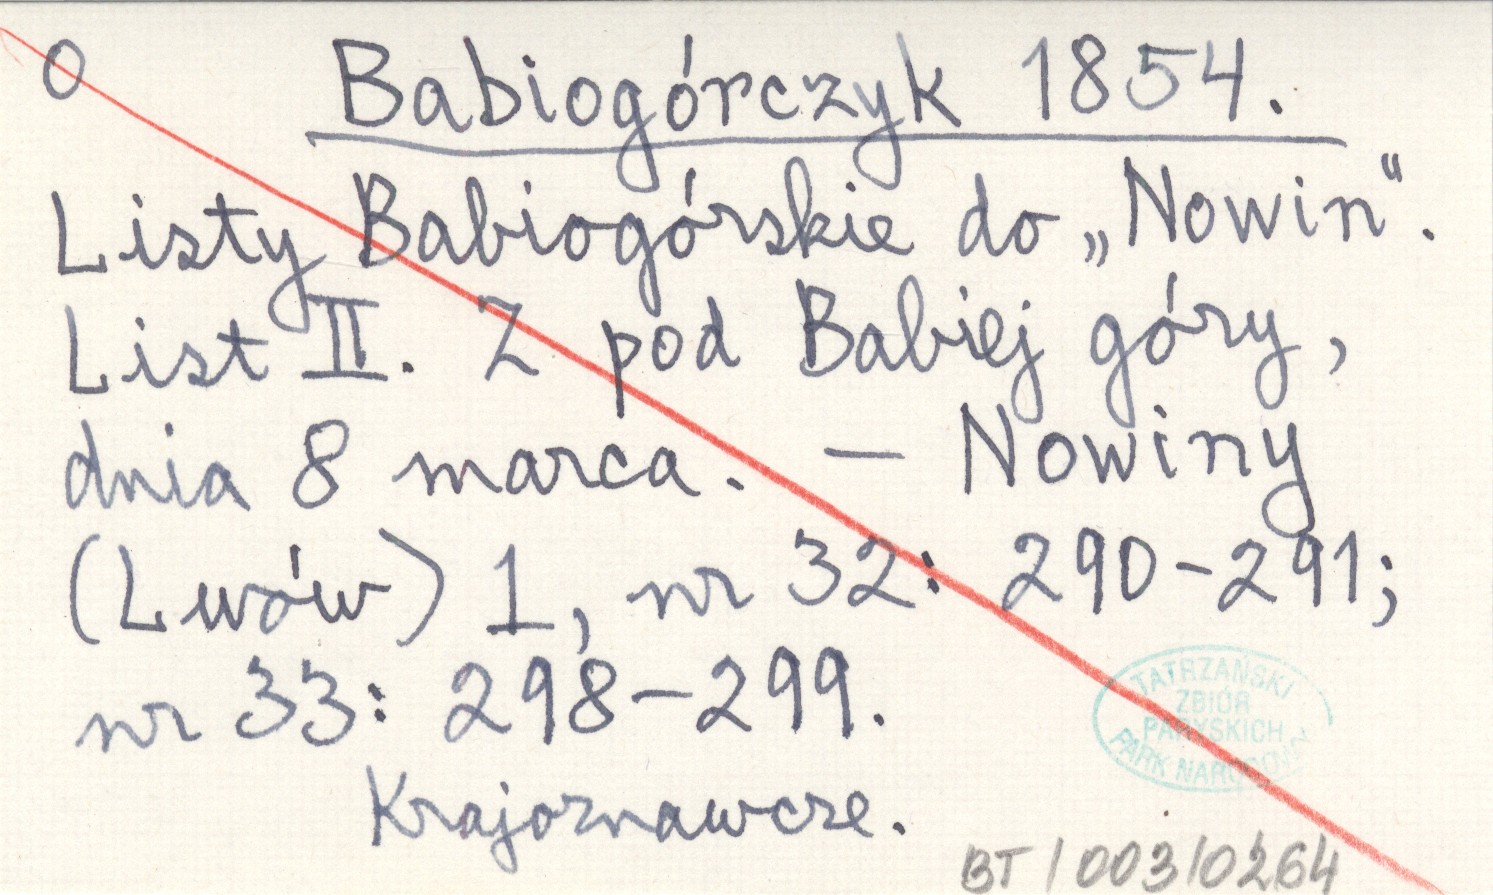 O
Babiogórczyk 1854.
Listy Babiogórskie do „Nowin".
List II. Z pod Babiej góry,
dnia 8 marca. — Nowiny
(Lwów) 1, nr 32: 290-291;
nr 33: 298-299.
TATRZAŃSKI
ZBIÓR
PARYSKICH
PARK NARODOWY
Krajoznawcze.
BT/003/0264